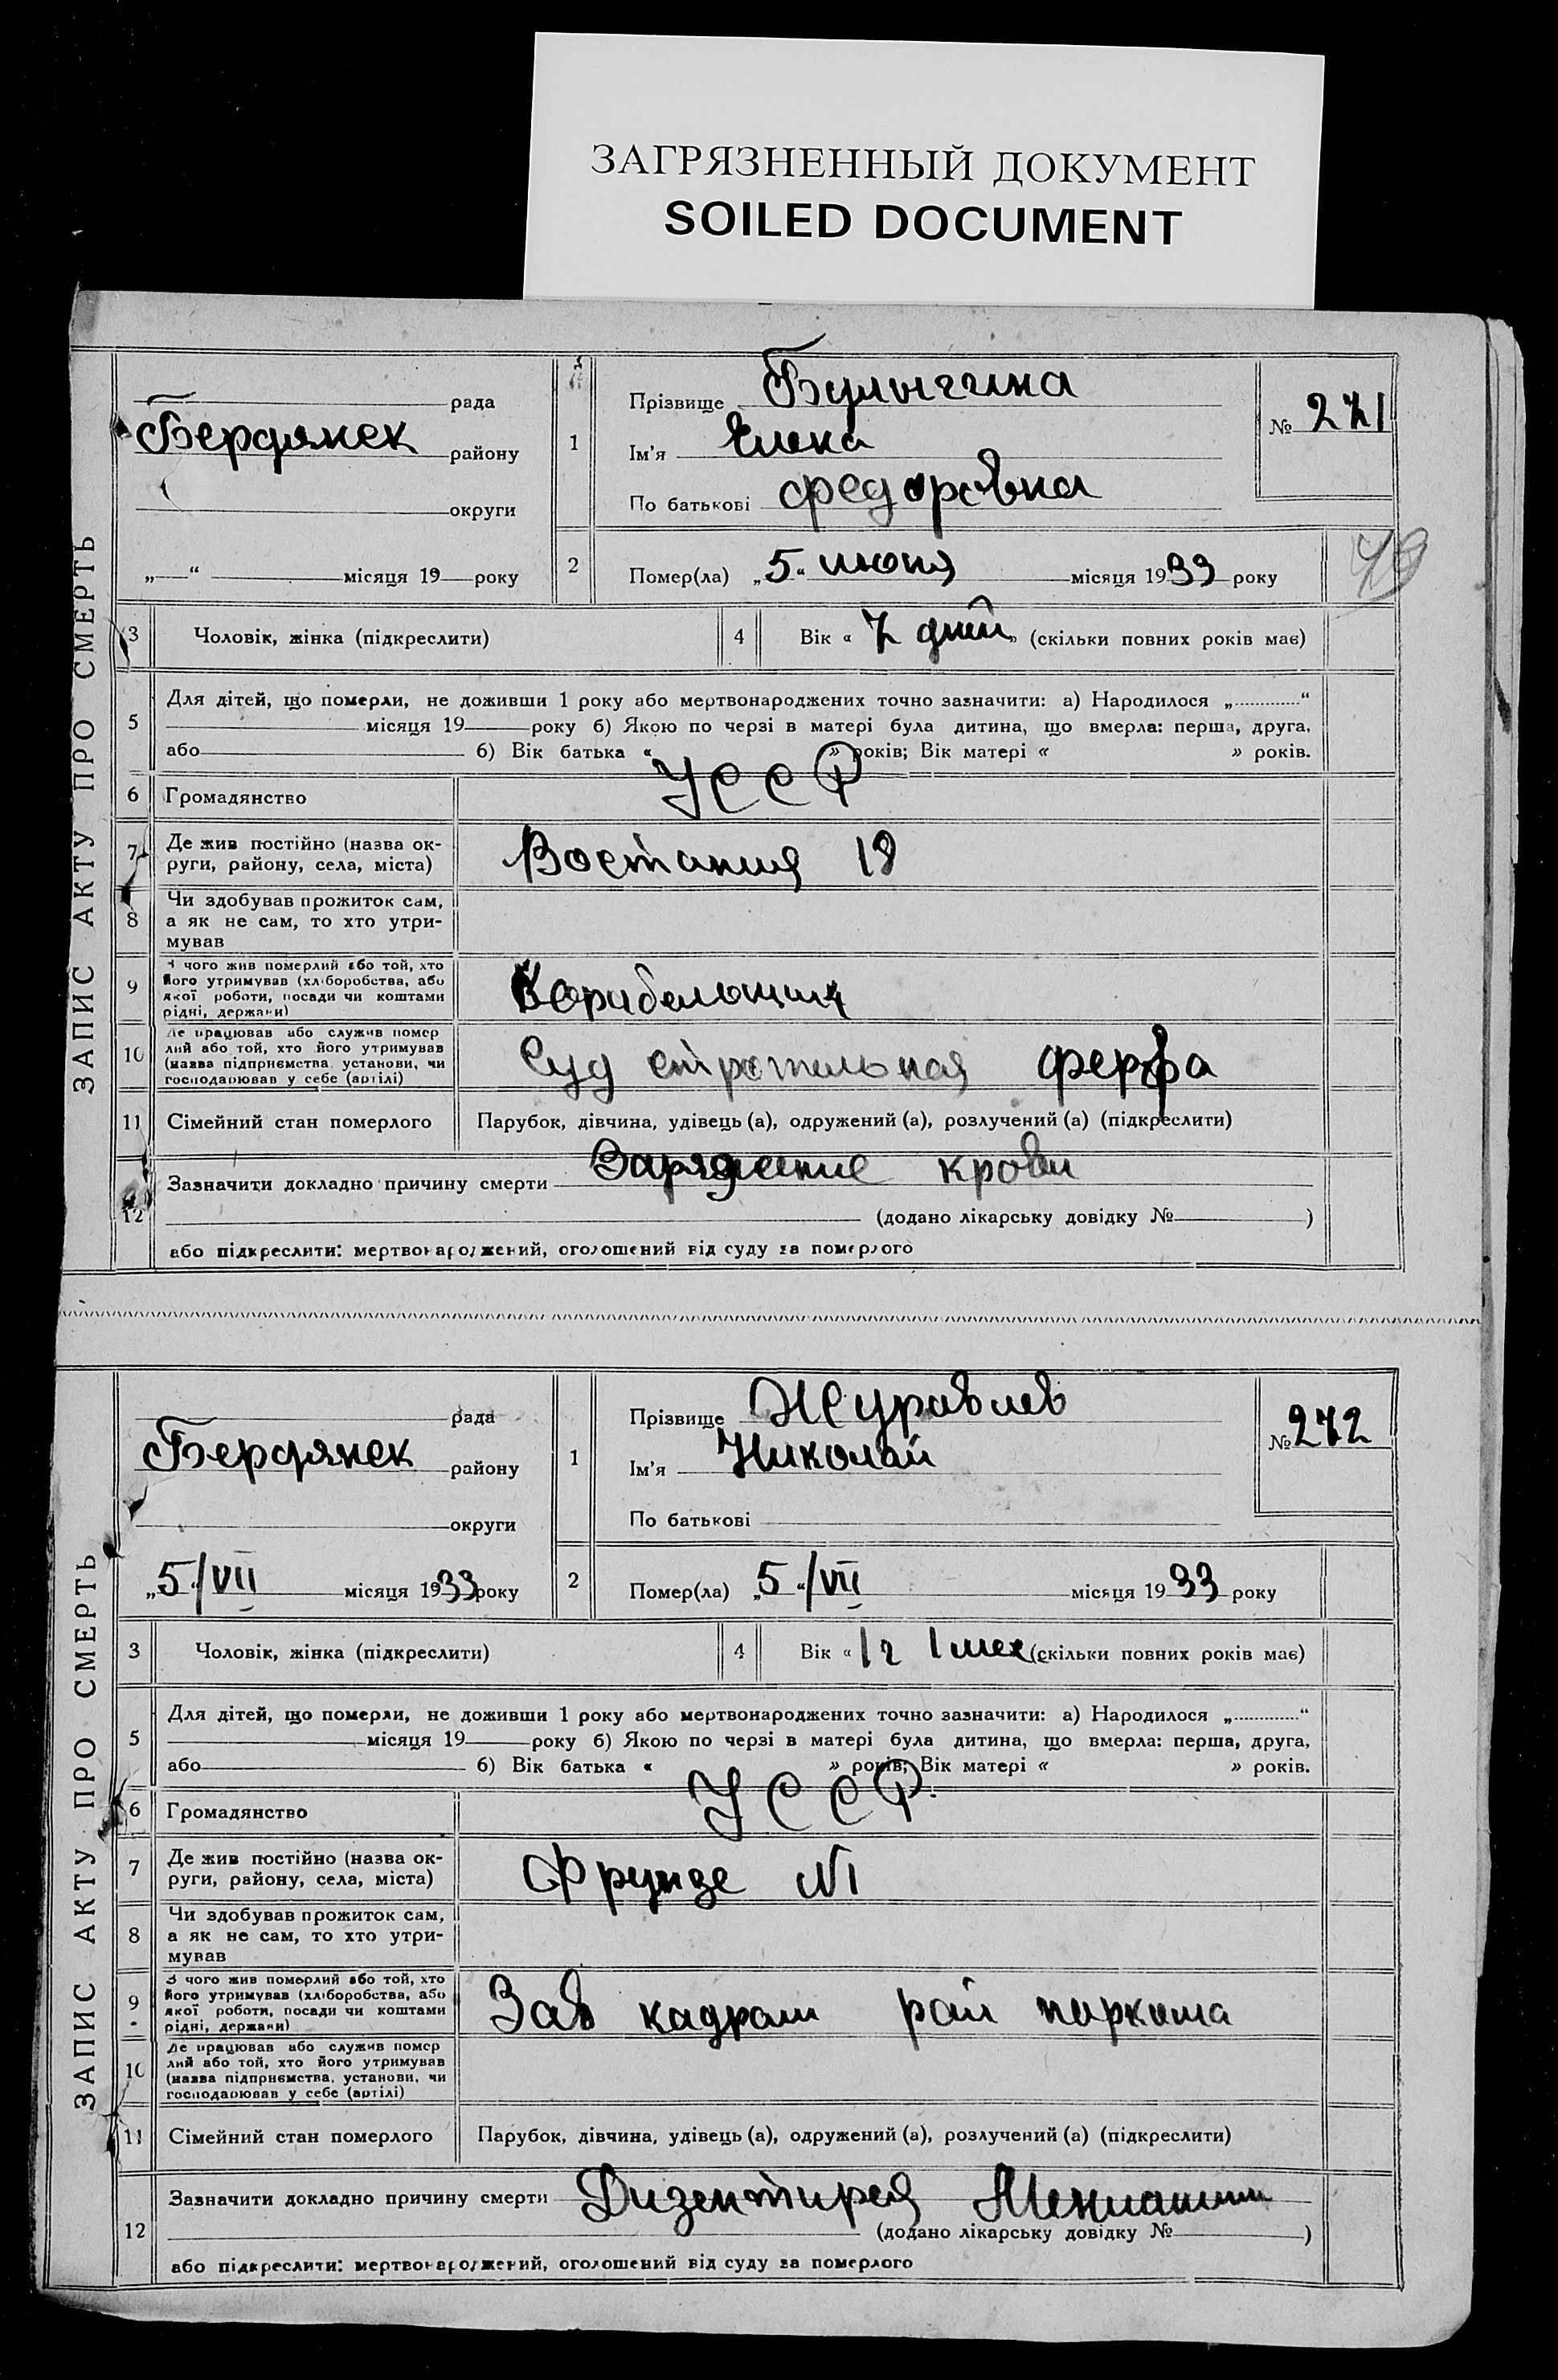 ЗАГРЯЗНЕННЫЙ ДОКУМЕНТ
SOILED DOCUMENT
ЗАПИС АКТУ ПРО СМЕРТЬ
рада
Бердянск району
округи
„ “ місяця 19 року
1
Прізвище Булыггина
Ім'я Елена
По батькові Федоровна
№ 271
2
Помер(ла) „5“ июня місяця 1933 року
49
3 Чоловік, жінка (підкреслити)
4 Вік « 7 дней » (скільки повних років має)
5 Для дітей, що померли, не доживши 1 року або мертвонароджених точно зазначити: а) Народилося „ “
місяця 19 року б) Якою по черзі в матері була дитина, що вмерла: перша, друга,
або б) Вік батька « » років; Вік матері « » років.
6 Громадянство УССР
7 Де жив постійно (назва ок-
руги, району, села, міста) Востания 18
8 Чи здобував прожиток сам,
а як не сам, то хто утри-
мував
9 З чого жив померлий або той, хто
його утримував (хліборобства, або
якої роботи, посади чи коштами
рідні, держави)
Корабельщик
10 Де працював або служив помер
лий або той, хто його утримував
(назва підприємства, установи, чи
господарював у себе (артілі)
Суд строительная
11 Сімейний стан померлого Парубок, дівчина, удівець (а), одружений (а), розлучений (а) (підкреслити)
12 Зазначити докладно причину смерти Заражение крови
(додано лікарську довідку № )
або підкреслити: мертвонароджений, оголошений від суду за померлого
ЗАПИС АКТУ ПРО СМЕРТЬ
рада
Бердянск району
округи
„5“/VII місяця 1933 року
1
Прізвище Журавлев
Ім'я Николай
По батькові
№ 272
2
Помер(ла) „5“/VII місяця 1933 року
3 Чоловік, жінка (підкреслити)
4 Вік « 1 г 1 мес (скільки повних років має)
5 Для дітей, що померли, не доживши 1 року або мертвонароджених точно зазначити: а) Народилося „ “
місяця 19 року б) Якою по черзі в матері була дитина, що вмерла: перша, друга,
або б) Вік батька « » років; Вік матері « » років.
6 Громадянство УССР.
7 Де жив постійно (назва ок-
руги, району, села, міста) Фрунзе №1
8 Чи здобував прожиток сам,
а як не сам, то хто утри-
мував
9 З чого жив померлий або той, хто
його утримував (хліборобства, або
якої роботи, посади чи коштами
рідні, держави)
Зав кадрам рай паркома
10 Де працював або служив помер
лий або той, хто його утримував
(назва підприємства, установи, чи
господарював у себе (артілі)
11 Сімейний стан померлого Парубок, дівчина, удівець (а), одружений (а), розлучений (а) (підкреслити)
12 Зазначити докладно причину смерти Дизентирея
(додано лікарську довідку № )
або підкреслити: мертвонароджений, оголошений від суду за померлого